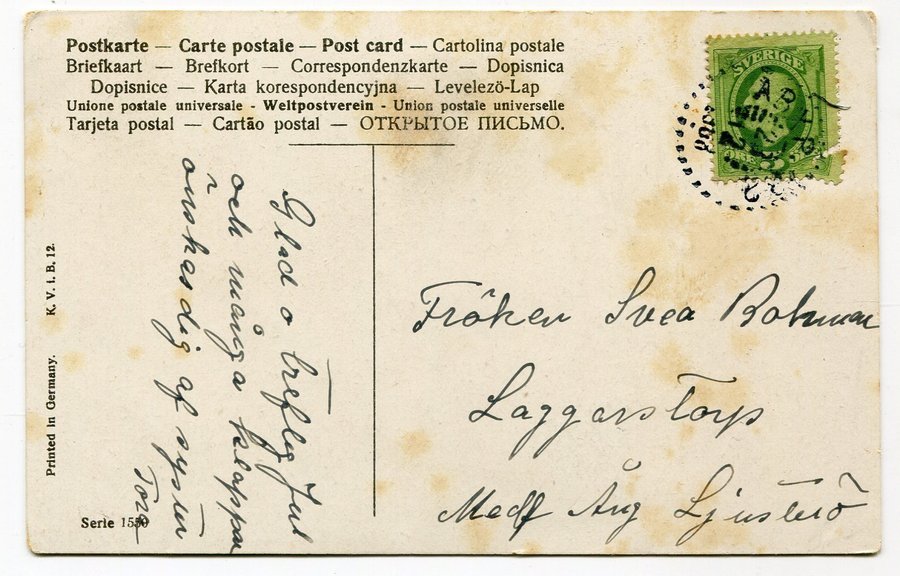 Postkarte — Carte postale — Post card — Cartolina postale
Briefkaart — Brefkort — Correspondenzkarte — Dopisnica
Dopisnice — Karta korespondencyjna — Levelező-Lap
Unione postale universale - Weltpostverein - Union postale universelle
Tarjeta postal — Cartão postal — ОТКРЫТОЕ ПИСЬМО.
SVERIGE
Glad o treflig Jul
och många klappar
önskas dig af syster
Tora
Fröken Svea Bohman
Laggarstorp
Medf Ång Ljusterö
K. V. i. B. 12.
Printed in Germany.
Serie 1550